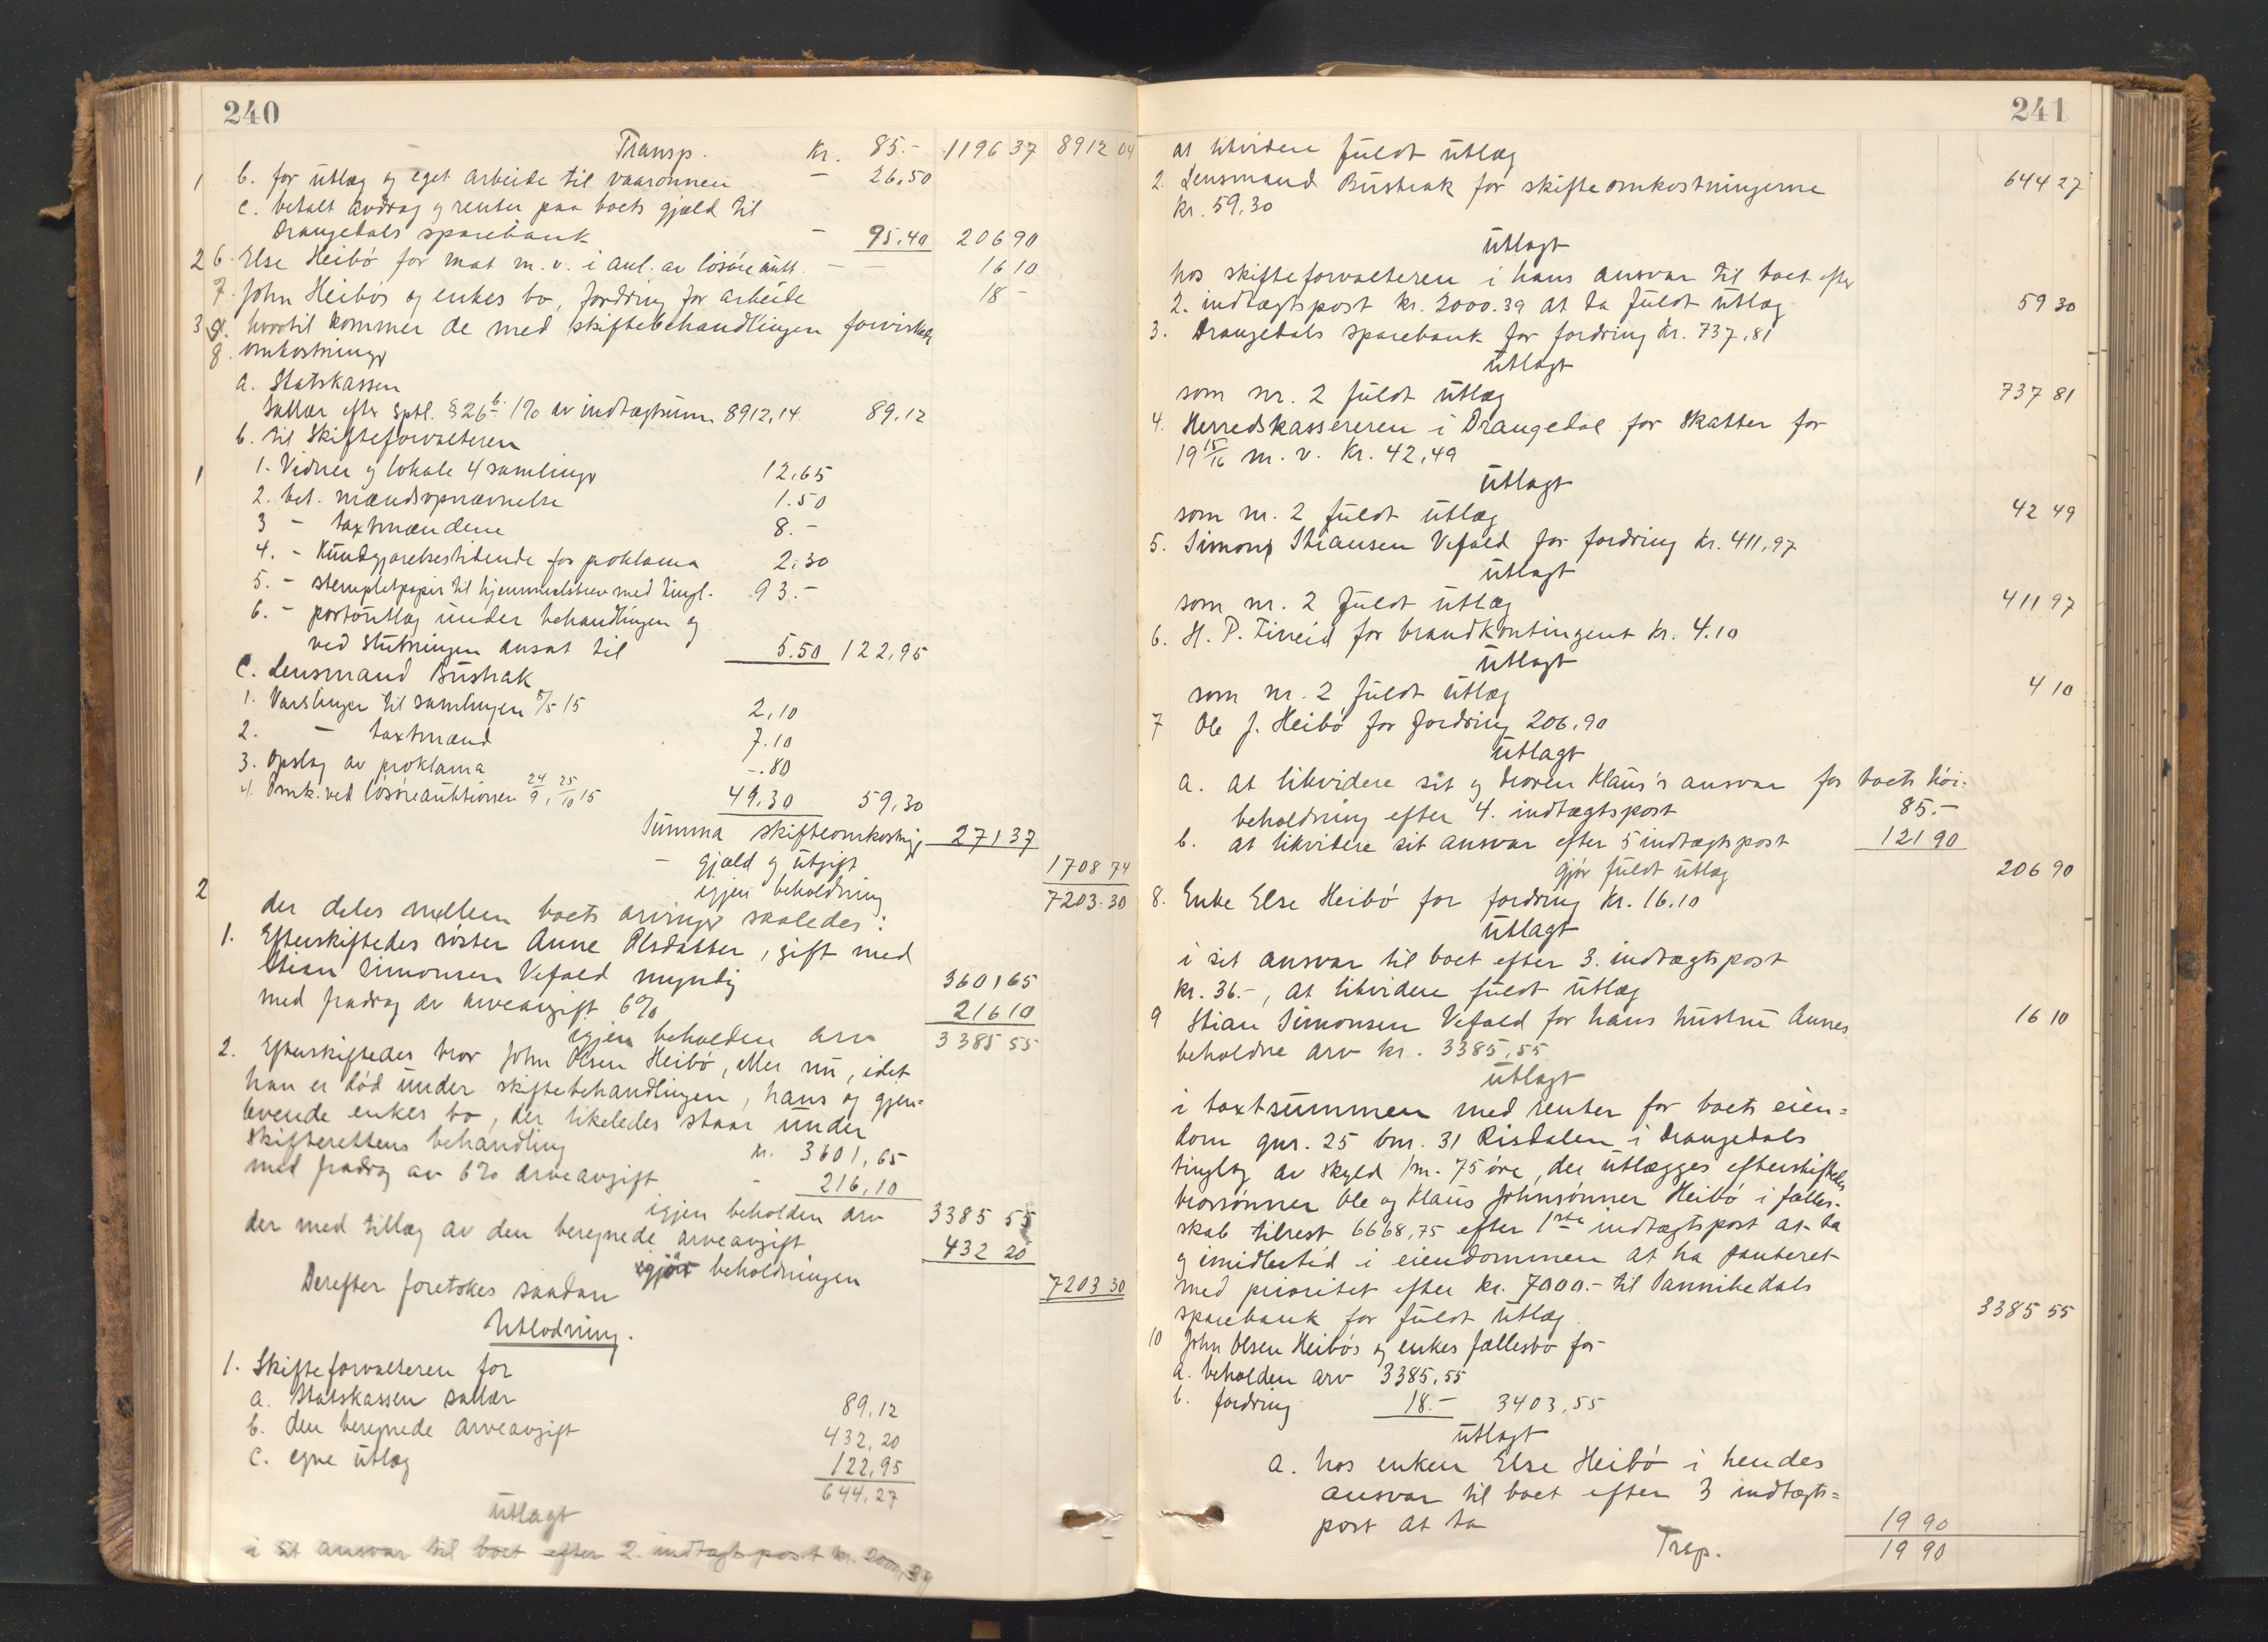 240
Transp. Kr. 85.- 1196 37 8912 04
1 b. for utlæg og eget arbeide til vaaronnen - 26,50
c. betalt avdrag og renter paa boets gjæld til
Drangedals sparebank - 95.40 206 90
2 6. Else Heibö for mat m. v. i anl. av lösöreaukt. - 16 10
7. John Heibös og enkes bo, fordring for arbeide 18 -
3 hvortil kommer de med skiftebehandlingen forvirkede
8. omkostninger
a. Statskassen
Sallær efter Sptl. § 26 b. 1% av indtægtsum 8912,14 89,12
b. til Skifteforvalteren
1 1. Vidner og lokale 4 samlinger 12,65
2. bet. mændsopnævnelse 1.50
3 - taxtmændene 8.-
4. - Kundgjørelsestidende for proklama 2,30
5. - stempletpapir til hjemmelsbrev med tingl. 93.-
6. - portoutlæg under behandlingen og
ved slutningen ansat til 5.50 122,95
C. Lensmand Bustrak
1. Varslinger til samlingen 8/5 15 2,10
2. - taxtmænd 7.10
3. Opslag av proklama -.80
4. Omk. ved lösöreauktionen 24/9, 25/10 15 49,30 59,30
Summa skifteomkostninger 271 37
- gjæld og utgift 1708 74
igjen beholdning 7203.30
2
der deles mellem boets arvinger saaledes:
1. Efterskiftedes söster Anne Olsdatter, gift med
Stian Simonsen Vefald myndig 3601 65
med fradrag av arveavgift 6% 216 10
igjen beholden arv 3385 55
2. Efterskiftedes bror John Olsen Heibö, eller nu, idet
han er död under skiftebehandlingen, hans og gjen=
levende enkes bo, der likeledes staar under
Skifterettens behandling kr. 3601,65
med fradrag av 6% arveavgift - 216,10
igjen beholden arv 3385 55
der med tillæg av den beregnede arveavgift 432 20
igjör beholdningen 7203 30
Derefter foretokes saadan
Utlodning.
1. Skifteforvalteren for
a. Statskassen sallær 89,12
b. den beregnede arveavgift 432,20
c. egne utlæg 122,95
644,27
utlagt
i sit ansvar til boet efter 2. indtægtspost kr. 2000,39
241
at likvidere fuldt utlæg 644 27
2. Lensmand Bustrak for skifteomkostningerne
kr. 59,30
utlagt
hos skifteforvalteren i hans ansvar til boet efter
2. indtægtspost kr. 2000.39 at ta fuldt utlæg 59 30
3. Drangedals sparebank for fordring kr. 737,81
utlagt
som nr. 2 fuldt utlæg 737 81
4. Herredskassereren i Drangedal for Skatter for
19 15/16 m. v. kr. 42,49
utlagt
som nr. 2 fuldt utlæg 42 49
5. Simon Stiansen Vefald for fordring kr. 411,97
utlagt
som nr. 2 fuldt utlæg 411 97
6. H. P. Tineid for brandkontingent kr. 4.10
utlagt
som nr. 2 fuldt utlæg 4 10
7 Ole J. Heibö for fordring 206,90
utlagt
a. at likvidere sit og broren Klaus's ansvar for boets höi=
beholdning efter 4. indtægtspost 85.-
b. at likvidere sit ansvar efter 5 indtægtspost 121 90
gjör fuldt utlæg 206 90
8. Enke Else Heibö for fordring kr. 16.10
utlagt
i sit ansvar til boet efter 3. indtægtspost
kr. 36.-, at likvidere fuldt utlæg 16 10
9 Stian Simonsen Vefald for hans hustru Annes
beholdne arv kr. 3385,55
utlagt
i taxtsummen med renter for boets eien=
dom gnr. 25 bnr. 31 Risdalen i Drangedals
tinglag av skyld /m. 75 öre, der utlægges efterskiftedes
brorsönner Ole og Klaus Johnsönner Heibö i fælles-
skab tilrest 6668,75 efter 1ste indtægtspost at ta
og imidlertid i eiendommen at ha panteret
med prioritet efter kr. 7000.- til Sannikedals
sparebank for fuldt utlæg 3385 55
10 John Olsen Heibös og enkes fællesbo for
a. beholden arv 3385,55
b. fordring 18.- 3403,55
utlagt
a. hos enken Else Heibö i hendes
ansvar til boet efter 3 indtægts=
post at ta 19 90
Trsp. 19 90